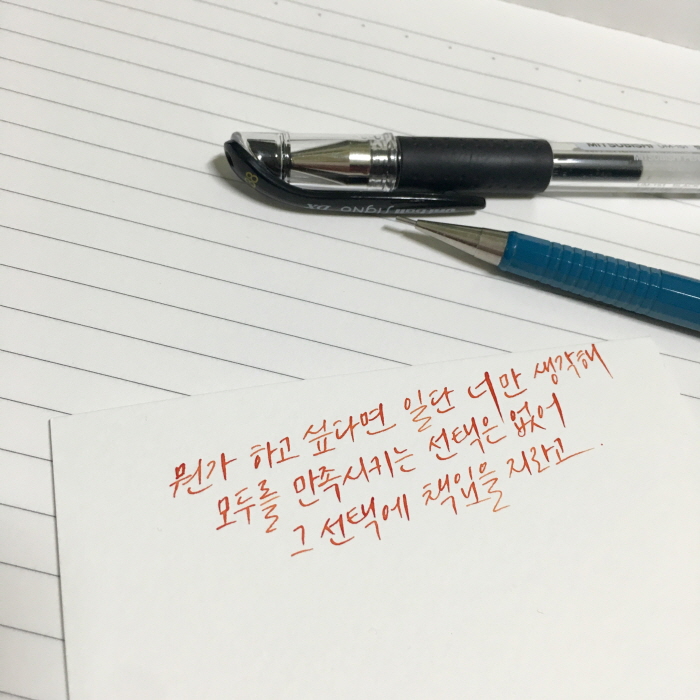 뭔가 하고 싶다면 일단 너만 생각해
모두를 만족시키는 선택은 없어
그 선택에 책임을 지라고.
uni-ball Signo DX
MITSUBISHI